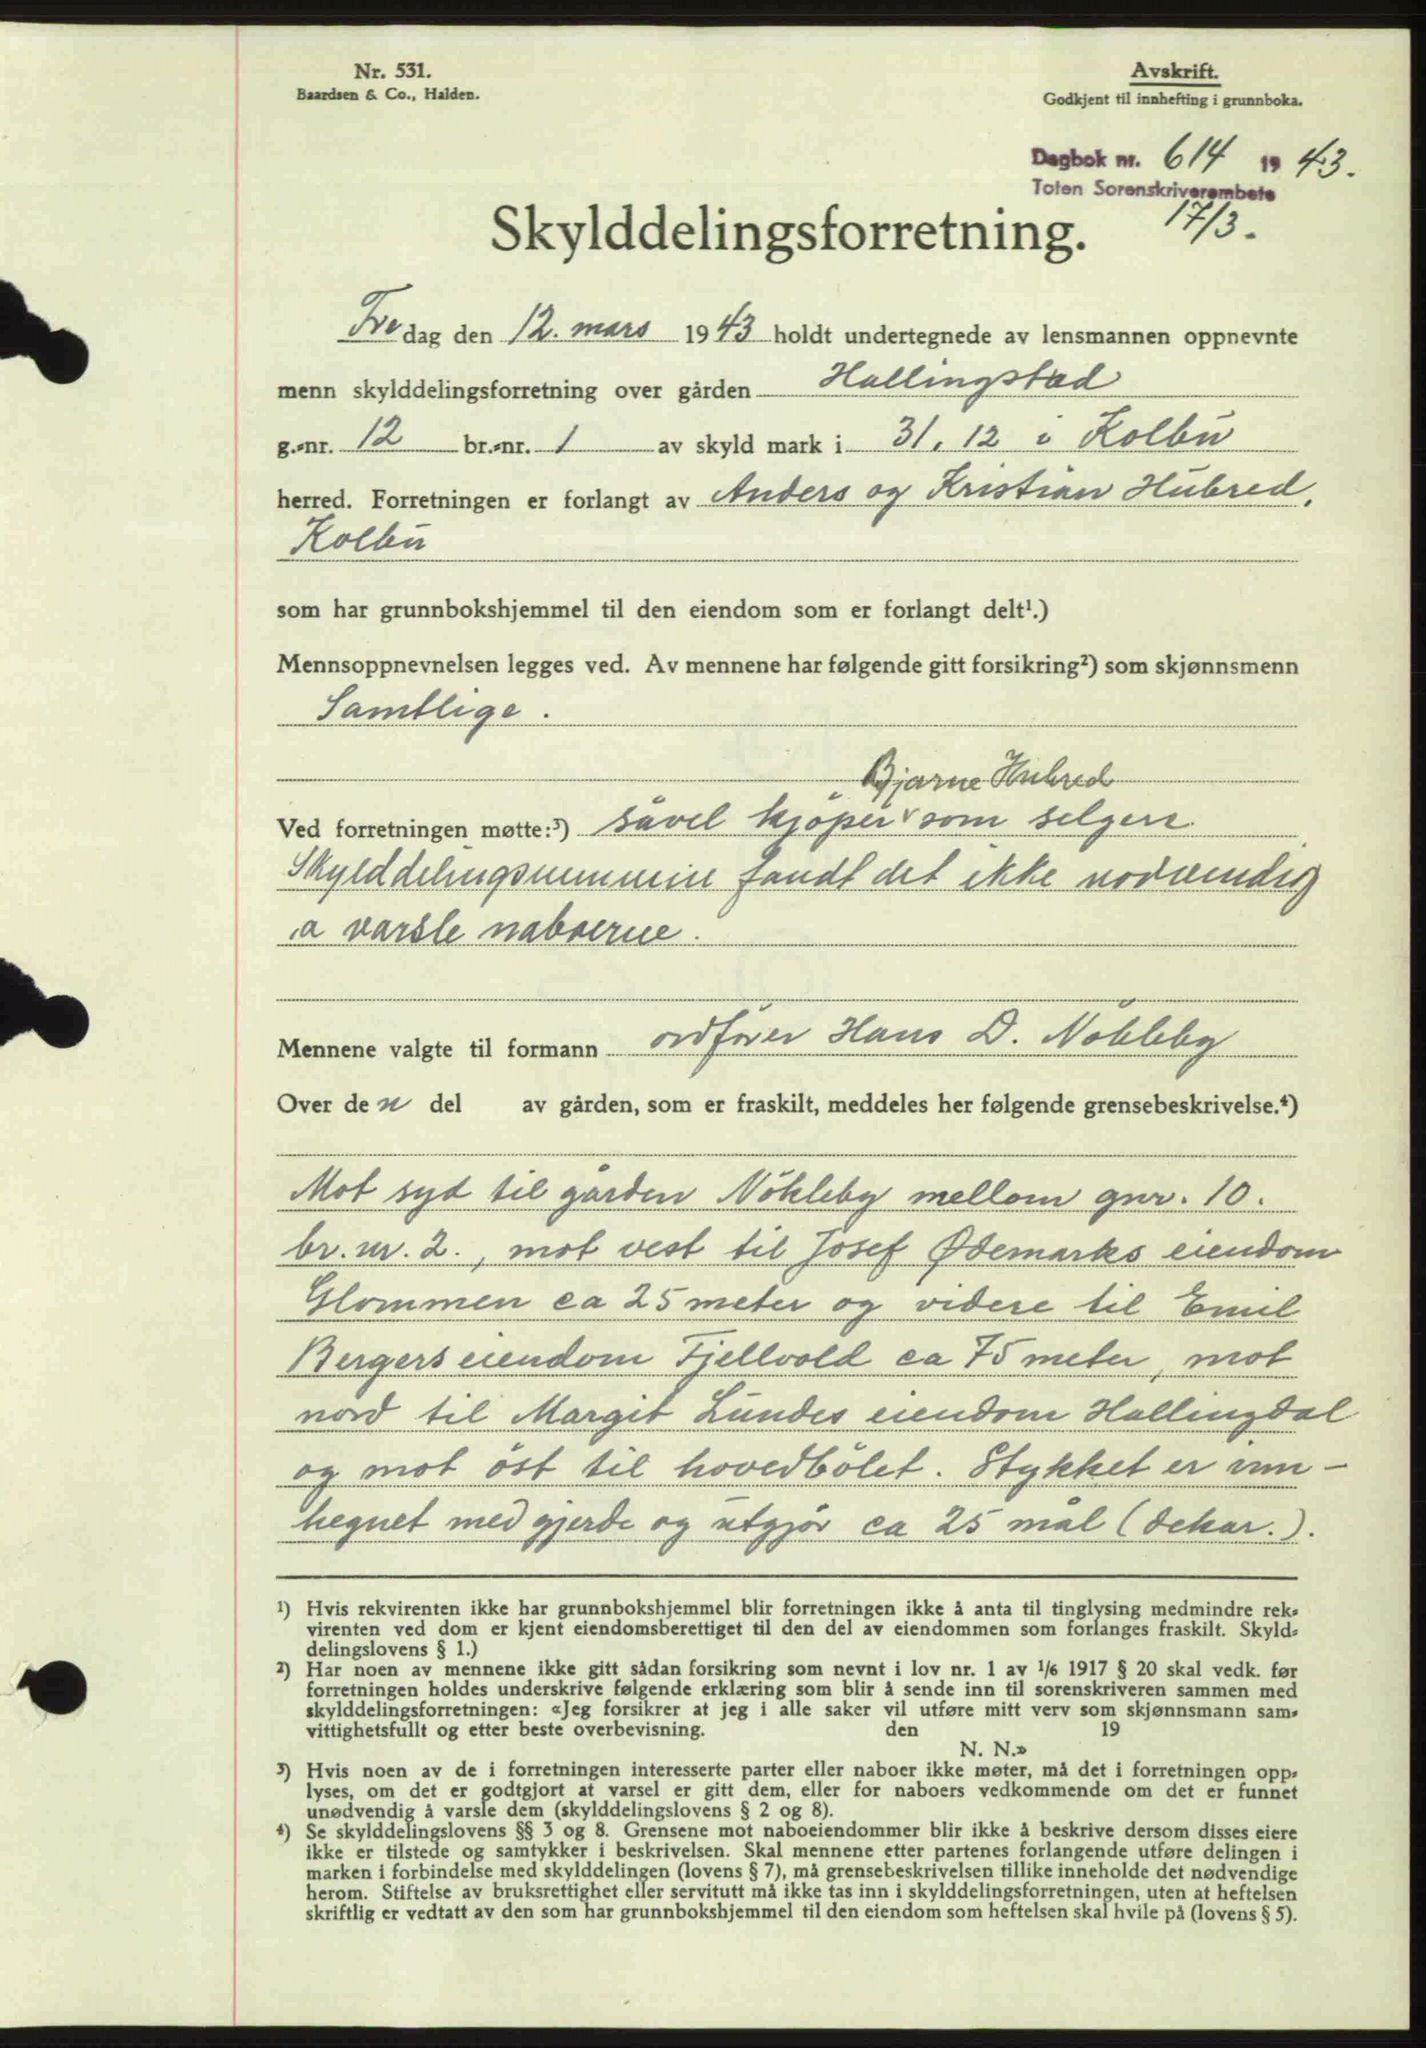 Nr. 531.
Baardsen & Co., Halden.
Avskrift.
Godkjent til innhefting i grunnboka.
Dagbok nr. 614 1943.
Toten Sorenskriverembete
17/3.
Skylddelingsforretning.
Fredag den 12. mars 1943 holdt undertegnede av lensmannen oppnevnte
menn skylddelingsforretning over gården Hallingstad
g.-nr. 12 br.-nr. 1 av skyld mark i 31,12 i Kolbu
herred. Forretningen er forlangt av Anders og Kristian Hubred,
Kolbu
som har grunnbokshjemmel til den eiendom som er forlangt delt¹.)
Mennsoppnevnelsen legges ved. Av mennene har følgende gitt forsikring²) som skjønnsmenn
Samtlige.
Bjarne Hubred
Ved forretningen møtte:³) såvel kjöper som selgere
Skylddelingsmennene fandt det ikke nodvendig
a varsle naboerne.
Mennene valgte til formann ordförer Hans D. Nökleby
Over den del av gården, som er fraskilt, meddeles her følgende grensebeskrivelse.⁴)
Mot syd til gården Nökleby mellom gnr. 10.
br. nr. 2., mot vest til Josef Ødemarks eiendom
Glommen ca 25 meter og videre til Emil
Bergers eiendom Fjellvold ca 75 meter, mot
nord til Margit Lundes eiendom Hallingdal
og mot öst til hovedbölet. Stykket er inn-
hegnet med gjerde og utgjör ca 25 mål (dekar.).
¹) Hvis rekvirenten ikke har grunnbokshjemmel blir forretningen ikke å anta til tinglysing medmindre rek-
virenten ved dom er kjent eiendomsberettiget til den del av eiendommen som forlanges fraskilt. Skyld-
delingslovens § 1.)
²) Har noen av mennene ikke gitt sådan forsikring som nevnt i lov nr. 1 av 1/6 1917 § 20 skal vedk. før
forretningen holdes underskrive følgende erklæring som blir å sende inn til sorenskriveren sammen med
skylddelingsforretningen: «Jeg forsikrer at jeg i alle saker vil utføre mitt verv som skjønnsmann sam-
vittighetsfullt og etter beste overbevisning. den 19
N. N.»
³) Hvis noen av de i forretningen interesserte parter eller naboer ikke møter, må det i forretningen opp-
lyses, om det er godtgjort at varsel er gitt dem, eller for naboers vedkommende om det er funnet
unødvendig å varsle dem (skylddelingslovens § 2 og 8).
⁴) Se skylddelingslovens §§ 3 og 8. Grensene mot naboeiendommer blir ikke å beskrive dersom disses eiere
ikke er tilstede og samtykker i beskrivelsen. Skal mennene etter partenes forlangende utføre delingen i
marken i forbindelse med skylddelingen (lovens § 7), må grensebeskrivelsen tillike inneholde det nødvendige
herom. Stiftelse av bruksrettighet eller servitutt må ikke tas inn i skylddelingsforretningen, uten at heftelsen
skriftlig er vedtatt av den som har grunnbokshjemmel til den eiendom som heftelsen skal hvile på (lovens § 5).